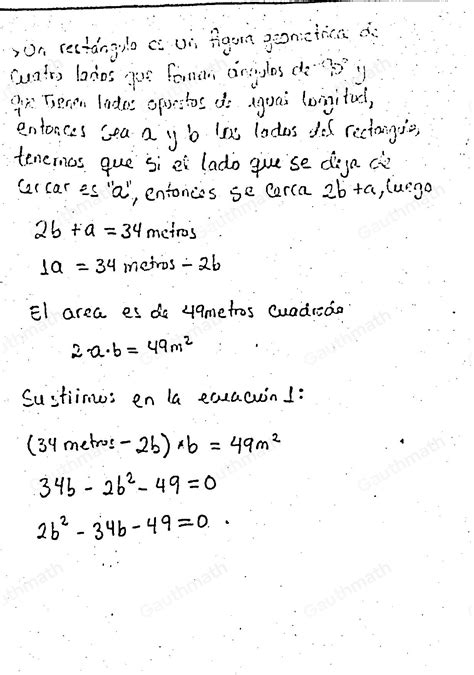 > Un rectángulo es un figura geometrica de
Cuatro lados que forman angulos de 90° y
que Tienen lados opuestos de igual longitud,
entonces sea a y b los lados del rectangulo,
tenemos que si el lado que se deja de
cercar es "a", entonces se cerca 2b + a, luego
2b + a = 34 metros
1a = 34 metros - 2b
El area es de 49 metros cuadrado
2 a·b = 49 m²
Sustiimos en la ecuación 1:
(34 metros - 2b) * b = 49 m²
34b - 2b² - 49 = 0
2b² - 34b - 49 = 0 .
Gauthmath